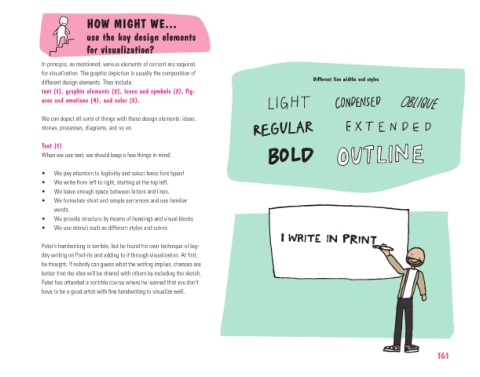 HOW MIGHT WE...
use the key design elements
for visualization?
In principle, as mentioned, various elements of content are required
for visualization. The graphic depiction is usually the composition of
different design elements. They include:
text (1), graphic elements (2), icons and symbols (3), fig-
ures and emotions (4), and color (5).
We can depict all sorts of things with these design elements: ideas,
stories, processes, diagrams, and so on.
Text (1)
When we use text, we should keep a few things in mind:
• We pay attention to legibility and select basic font types!
• We write from left to right, starting at the top left.
• We leave enough space between letters and lines.
• We formulate short and simple sentences and use familiar
words.
• We provide structure by means of headings and visual blocks.
• We use stimuli such as different styles and colors.
Peter's handwriting is terrible, but he found his own technique of leg-
ibly writing on Post-its and adding to it through visualization. At first,
he thought, if nobody can guess what the writing implies, chances are
better that the idea will be shared with others by including the sketch.
Peter has attended a scribble course where he learned that you don't
have to be a good artist with fine handwriting to visualize well.
Different line widths and styles
LIGHT CONDENSED OBLIQUE
REGULAR EXTENDED
BOLD OUTLINE
I WRITE IN PRINT
161